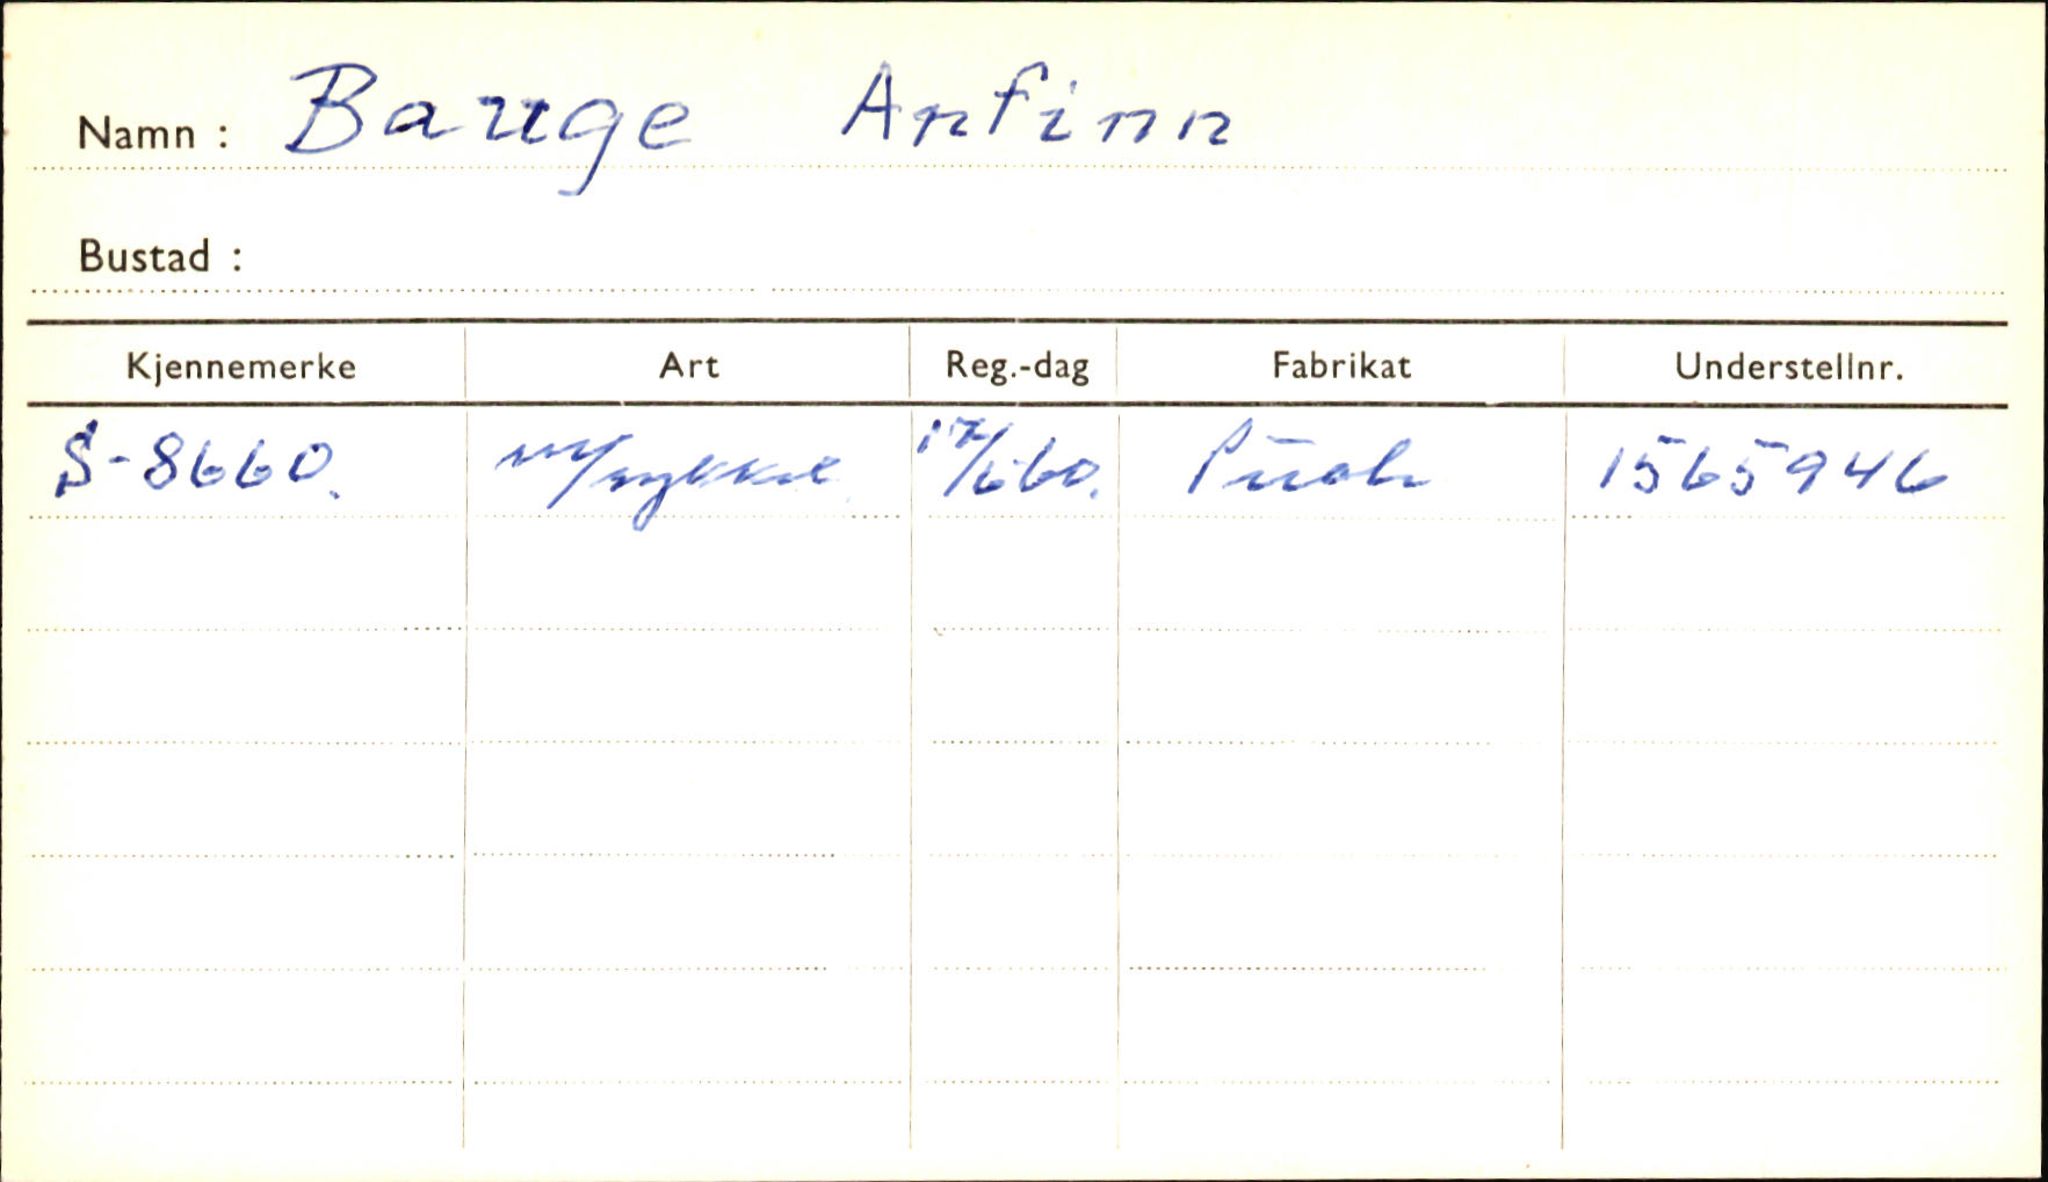 Namn : Bauge Anfinn
Bustad :
Kjennemerke Art Reg.-dag Fabrikat Understellnr.
S-8660. m/sykkel 17/6 60. Puch 1565946